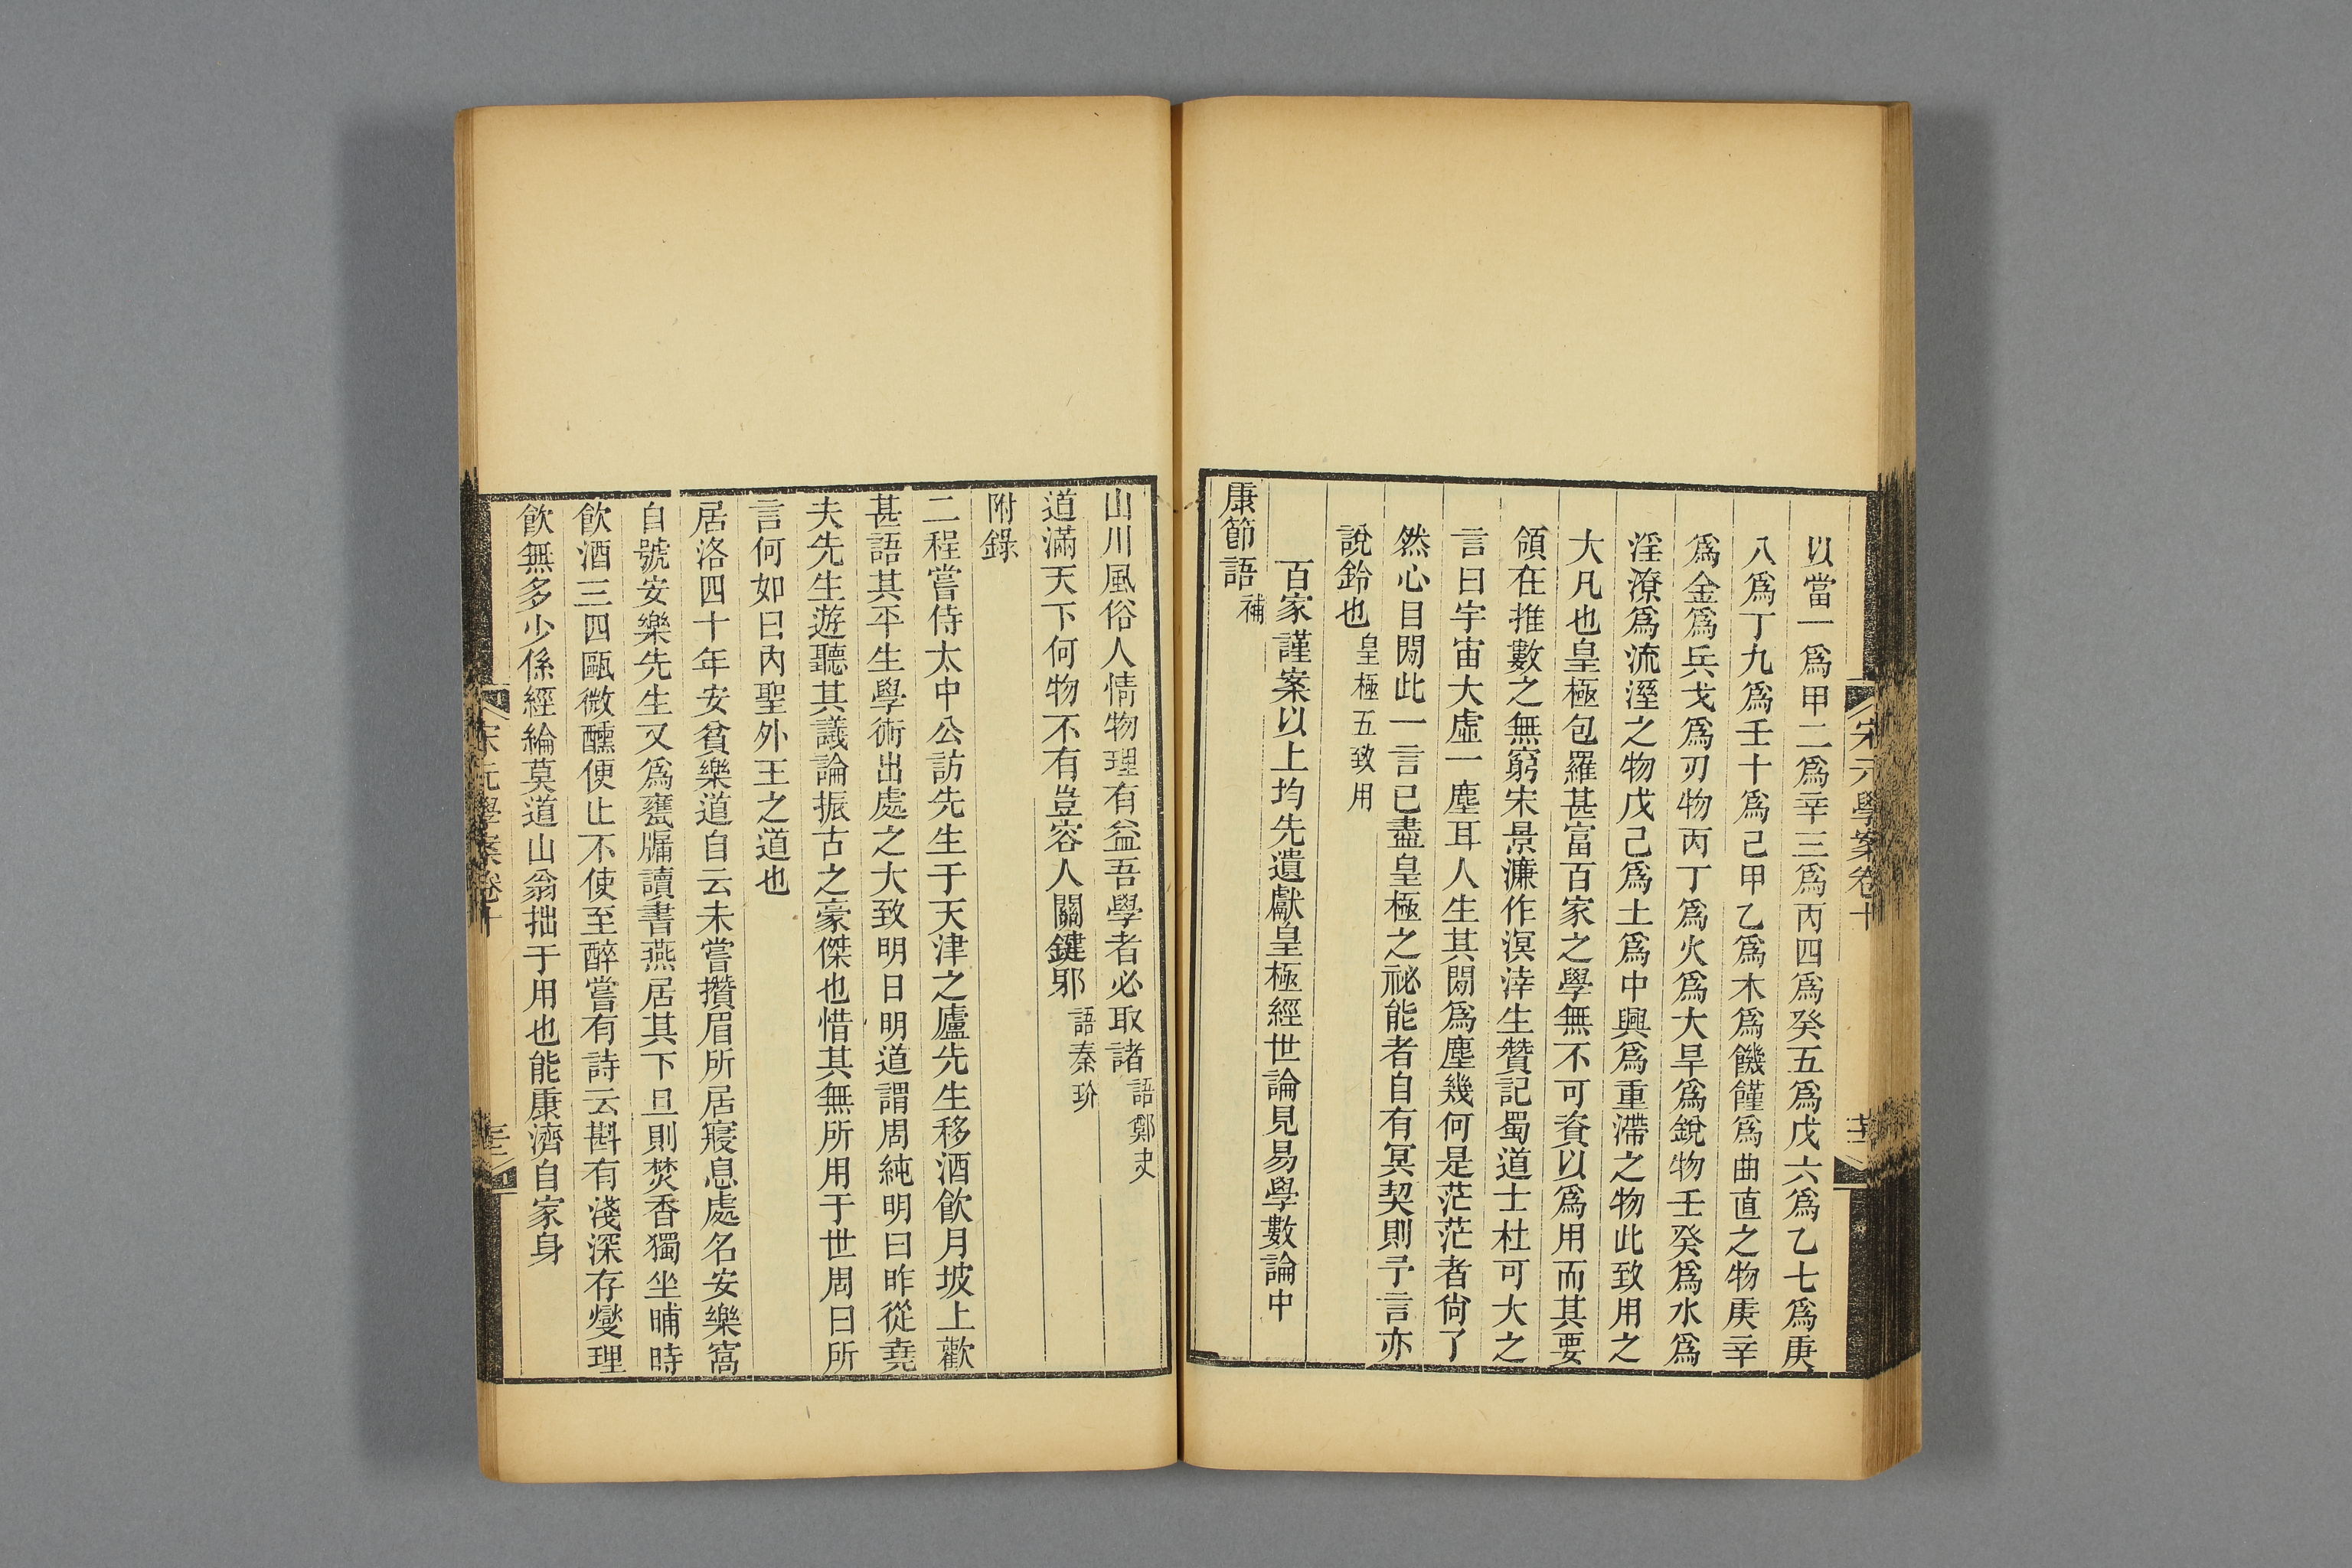 宋元學案卷十
以當一爲甲二爲辛三爲丙四爲癸五爲戊六爲乙七爲庚
八爲丁九爲壬十爲己甲乙爲木爲饑饉爲曲直之物庚辛
爲金爲兵戈爲刃物丙丁爲火爲大旱爲銳物壬癸爲水爲
淫潦爲流溼之物戊己爲土爲中興爲重滯之物此致用之
大凡也皇極包羅甚富百家之學無不可資以爲用而其要
領在推數之無窮宋景濂作溟涬生贊記蜀道士杜可大之
言曰宇宙大虛一塵耳人生其閒爲塵幾何是茫茫者尙了
然心目閒此一言已盡皇極之祕能者自有冥契則予言亦
說鈴也皇極五致用
百家謹案以上均先遺獻皇極經世論見易學數論中
康節語補
山川風俗人情物理有益吾學者必取諸語鄭史
道滿天下何物不有豈容人關鍵邪語秦玠
附錄
二程嘗侍太中公訪先生于天津之廬先生移酒飮月坡上歡
甚語其平生學術出處之大致明日明道謂周純明曰昨從堯
夫先生遊聽其議論振古之豪傑也惜其無所用于世周曰所
言何如曰內聖外王之道也
居洛四十年安貧樂道自云未嘗攢眉所居寢息處名安樂窩
自號安樂先生又爲甕牖讀書燕居其下旦則焚香獨坐晡時
飮酒三四甌微醺便止不使至醉嘗有詩云斟有淺深存燮理
飮無多少係經綸莫道山翁拙于用也能康濟自家身
宋元學案卷十